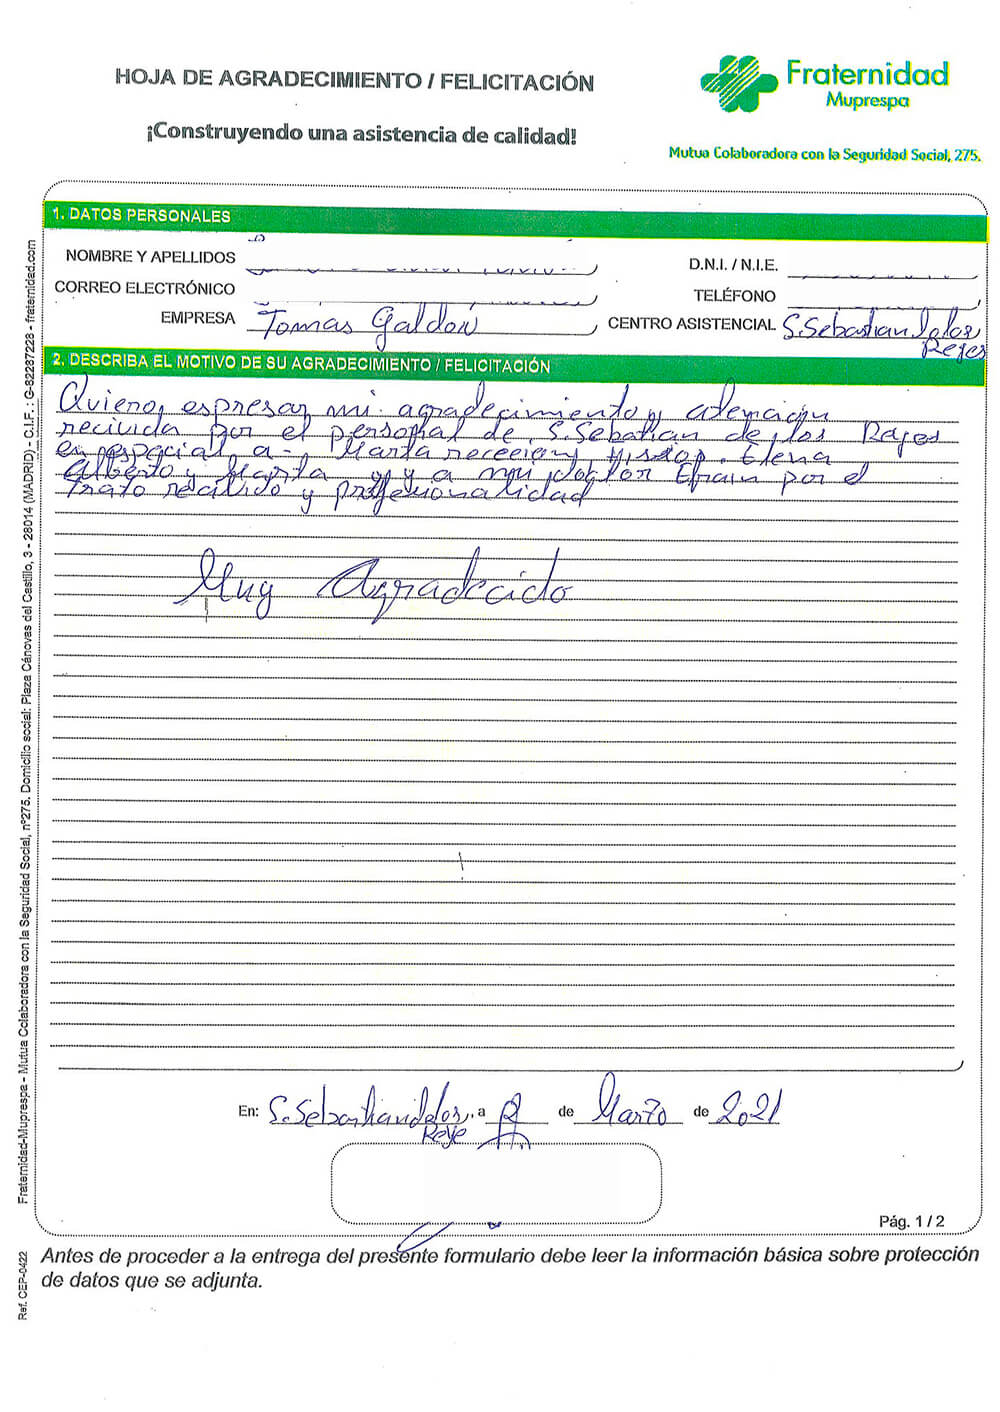 HOJA DE AGRADECIMIENTO / FELICITACIÓN
¡Construyendo una asistencia de calidad!
Fraternidad
Muprespa
Mutua Colaboradora con la Seguridad Social, 275.
1. DATOS PERSONALES
NOMBRE Y APELLIDOS
D.N.I. / N.I.E.
CORREO ELECTRÓNICO
TELÉFONO
EMPRESA Tomas Galdon
CENTRO ASISTENCIAL S.Sebastian delos
Reyes
2. DESCRIBA EL MOTIVO DE SU AGRADECIMIENTO / FELICITACIÓN
Quiero, espresar mi agradecimiento y atencion
recivida por el personal de S.Sebatian de los Reyes
en especial a Marta Elena
Alberto y Marta y a mi doctor Efrain por el
trato recibido y profesionalidad
Muy Agradecido
En: S.Sebastian delos a de Marzo de 2021
Reye
Pág. 1 / 2
Antes de proceder a la entrega del presente formulario debe leer la información básica sobre protección
de datos que se adjunta.
Fraternidad-Muprespa - Mutua Colaboradora con la Seguridad Social, nº275. Domicilio social: Plaza Cánovas del Castillo, 3 - 28014 (MADRID) - C.I.F. : G-82287228 - fraternidad.com
Ref. CEP-0422